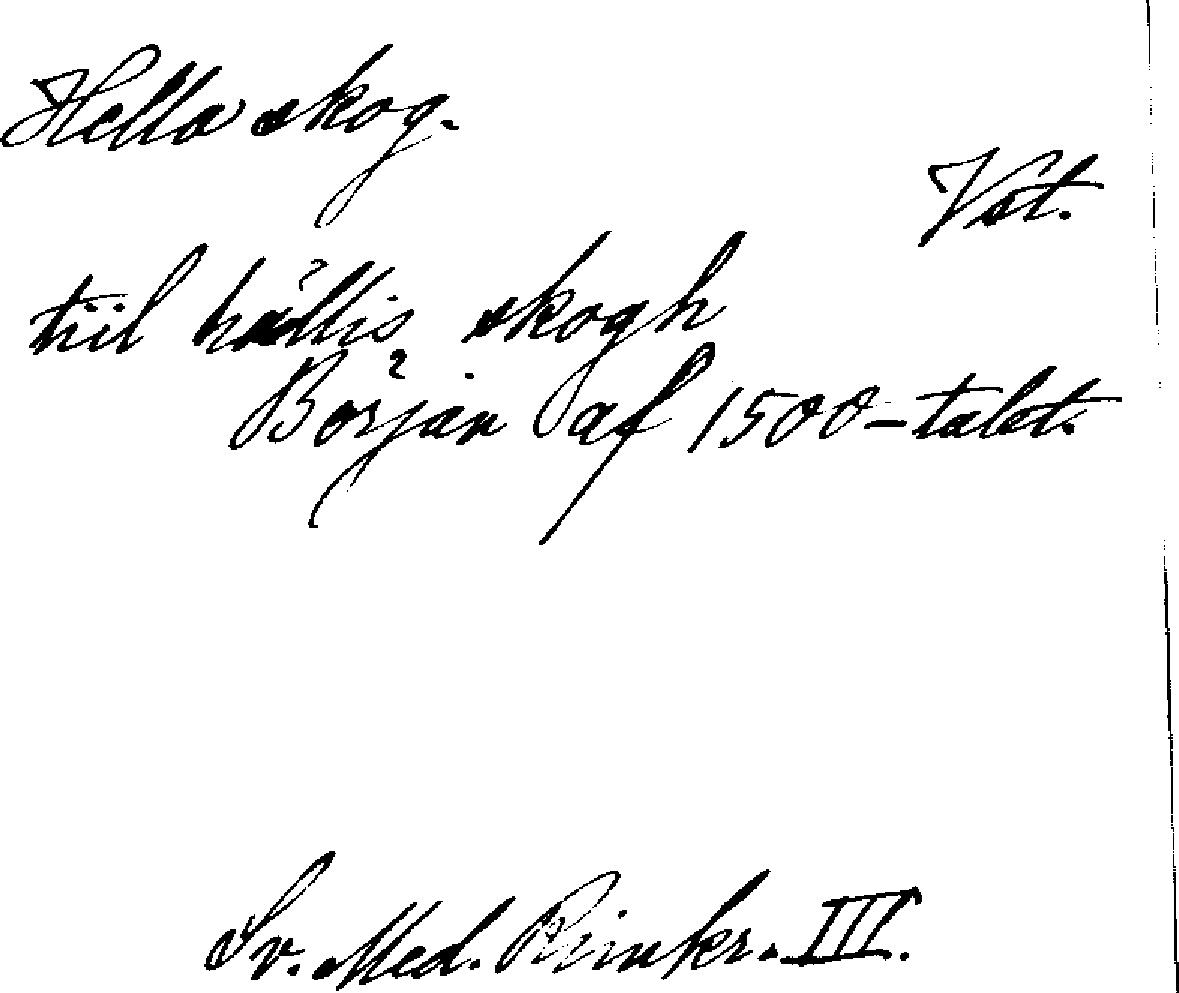 Hella skog.
Vst.
tiil hällis skogh
Början af 1500-talet.
Sv. Med. Rimkr. III.